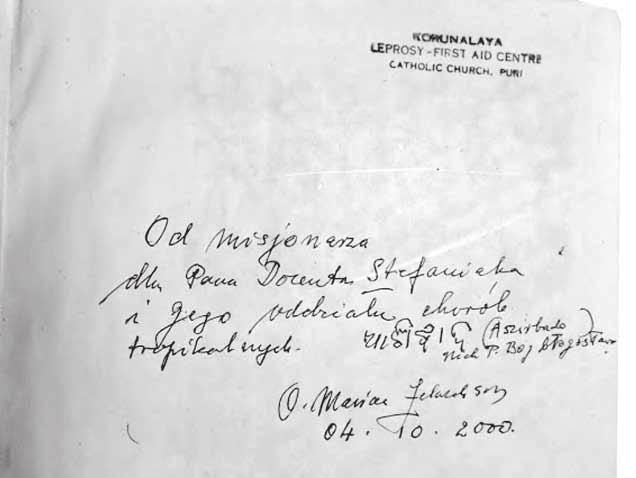 KORUNALAYA
LEPROSY-FIRST AID CENTRE
CATHOLIC CHURCH, PURI
Od misjonarza
dla Pana Docenta Stefaniaka
i Jego oddziału chorób
tropikalnych.
(Aszirbado)
niech P. Bóg błogosławi
O. Marian
04. 10. 2000.